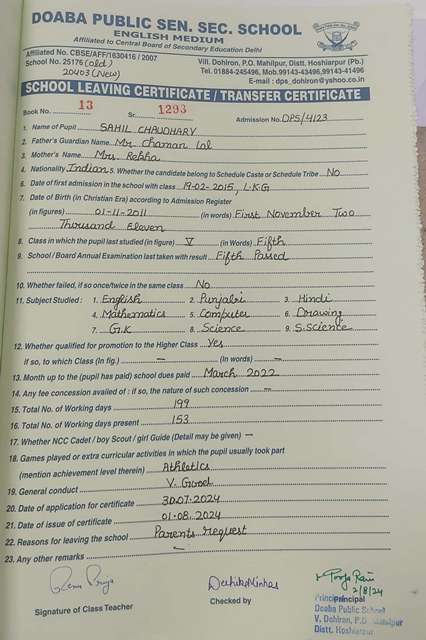 DOABA PUBLIC SEN. SEC. SCHOOL
ENGLISH MEDIUM
Affiliated to Central Board of Secondary Education Delhi
Affiliated No. CBSE/AFF/1630416 / 2007
School No. 25176 (old)
20403 (New)
Vill. Dohlron, P.O. Mahilpur, Distt. Hoshiarpur (Pb.)
Tel. 01884-245496, Mob.99143-43496,99143-41496
E-mail : dps_dohlron@yahoo.co.in
SCHOOL LEAVING CERTIFICATE / TRANSFER CERTIFICATE
Book No. 13 Sr. 1293 Admission No. DPS/4123
1. Name of Pupil SAHIL CHAUDHARY
2. Father's Guardian Name Mr. Chaman Lal
3. Mother's Name Mrs. Rekha
4. Nationality Indian 5. Whether the candidate belong to Schedule Caste or Schedule Tribe No
6. Date of first admission in the school with class 19-02-2015, L.K.G
7. Date of Birth (in Christian Era) according to Admission Register
(in figures) 01-11-2011 (in words) First November Two
Thousand Eleven
8. Class in which the pupil last studied (in figure) V (in Words) Fifth
9. School / Board Annual Examination last taken with result Fifth Passed
10. Whether failed, if so once/twice in the same class No
11. Subject Studied : 1. English 2. Punjabi 3. Hindi
4. Mathematics 5. Computer 6. Drawing
7. G.K 8. Science 9. S.Science
12. Whether qualified for promotion to the Higher Class Yes
If so, to which Class (In fig.) — (In words) —
13. Month up to the (pupil has paid) school dues paid March 2022
14. Any fee concession availed of : if so, the nature of such concession —
15. Total No. of Working days 199
16. Total No. of Working days present 153
17. Whether NCC Cadet / boy Scout / girl Guide (Detail may be given) —
18. Games played or extra curricular activities in which the pupil usually took part
(mention achievement level therein) Athletics
19. General conduct V. Good
20. Date of application for certificate 30.07.2024
21. Date of issue of certificate 01.08.2024
22. Reasons for leaving the school Parents request
23. Any other remarks —
Signature of Class Teacher
Checked by
2/8/24
Principal
Principal
Doaba Public School
V. Dohlron, P.O. Mahilpur
Distt. Hoshiarpur